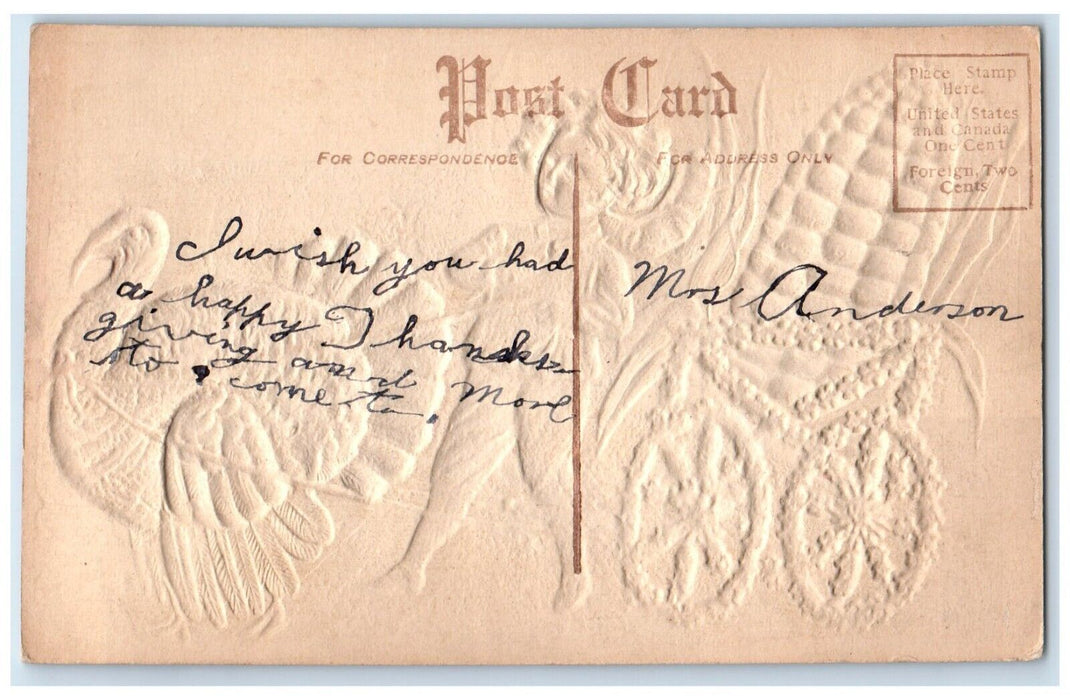 Post Card
FOR CORRESPONDENCE
FOR ADDRESS ONLY
Place Stamp
Here.
United States
and Canada
One Cent
Foreign, Two
Cents
I wish you had
a happy Thanks-
giving and More
to come to.
Mrs Anderson